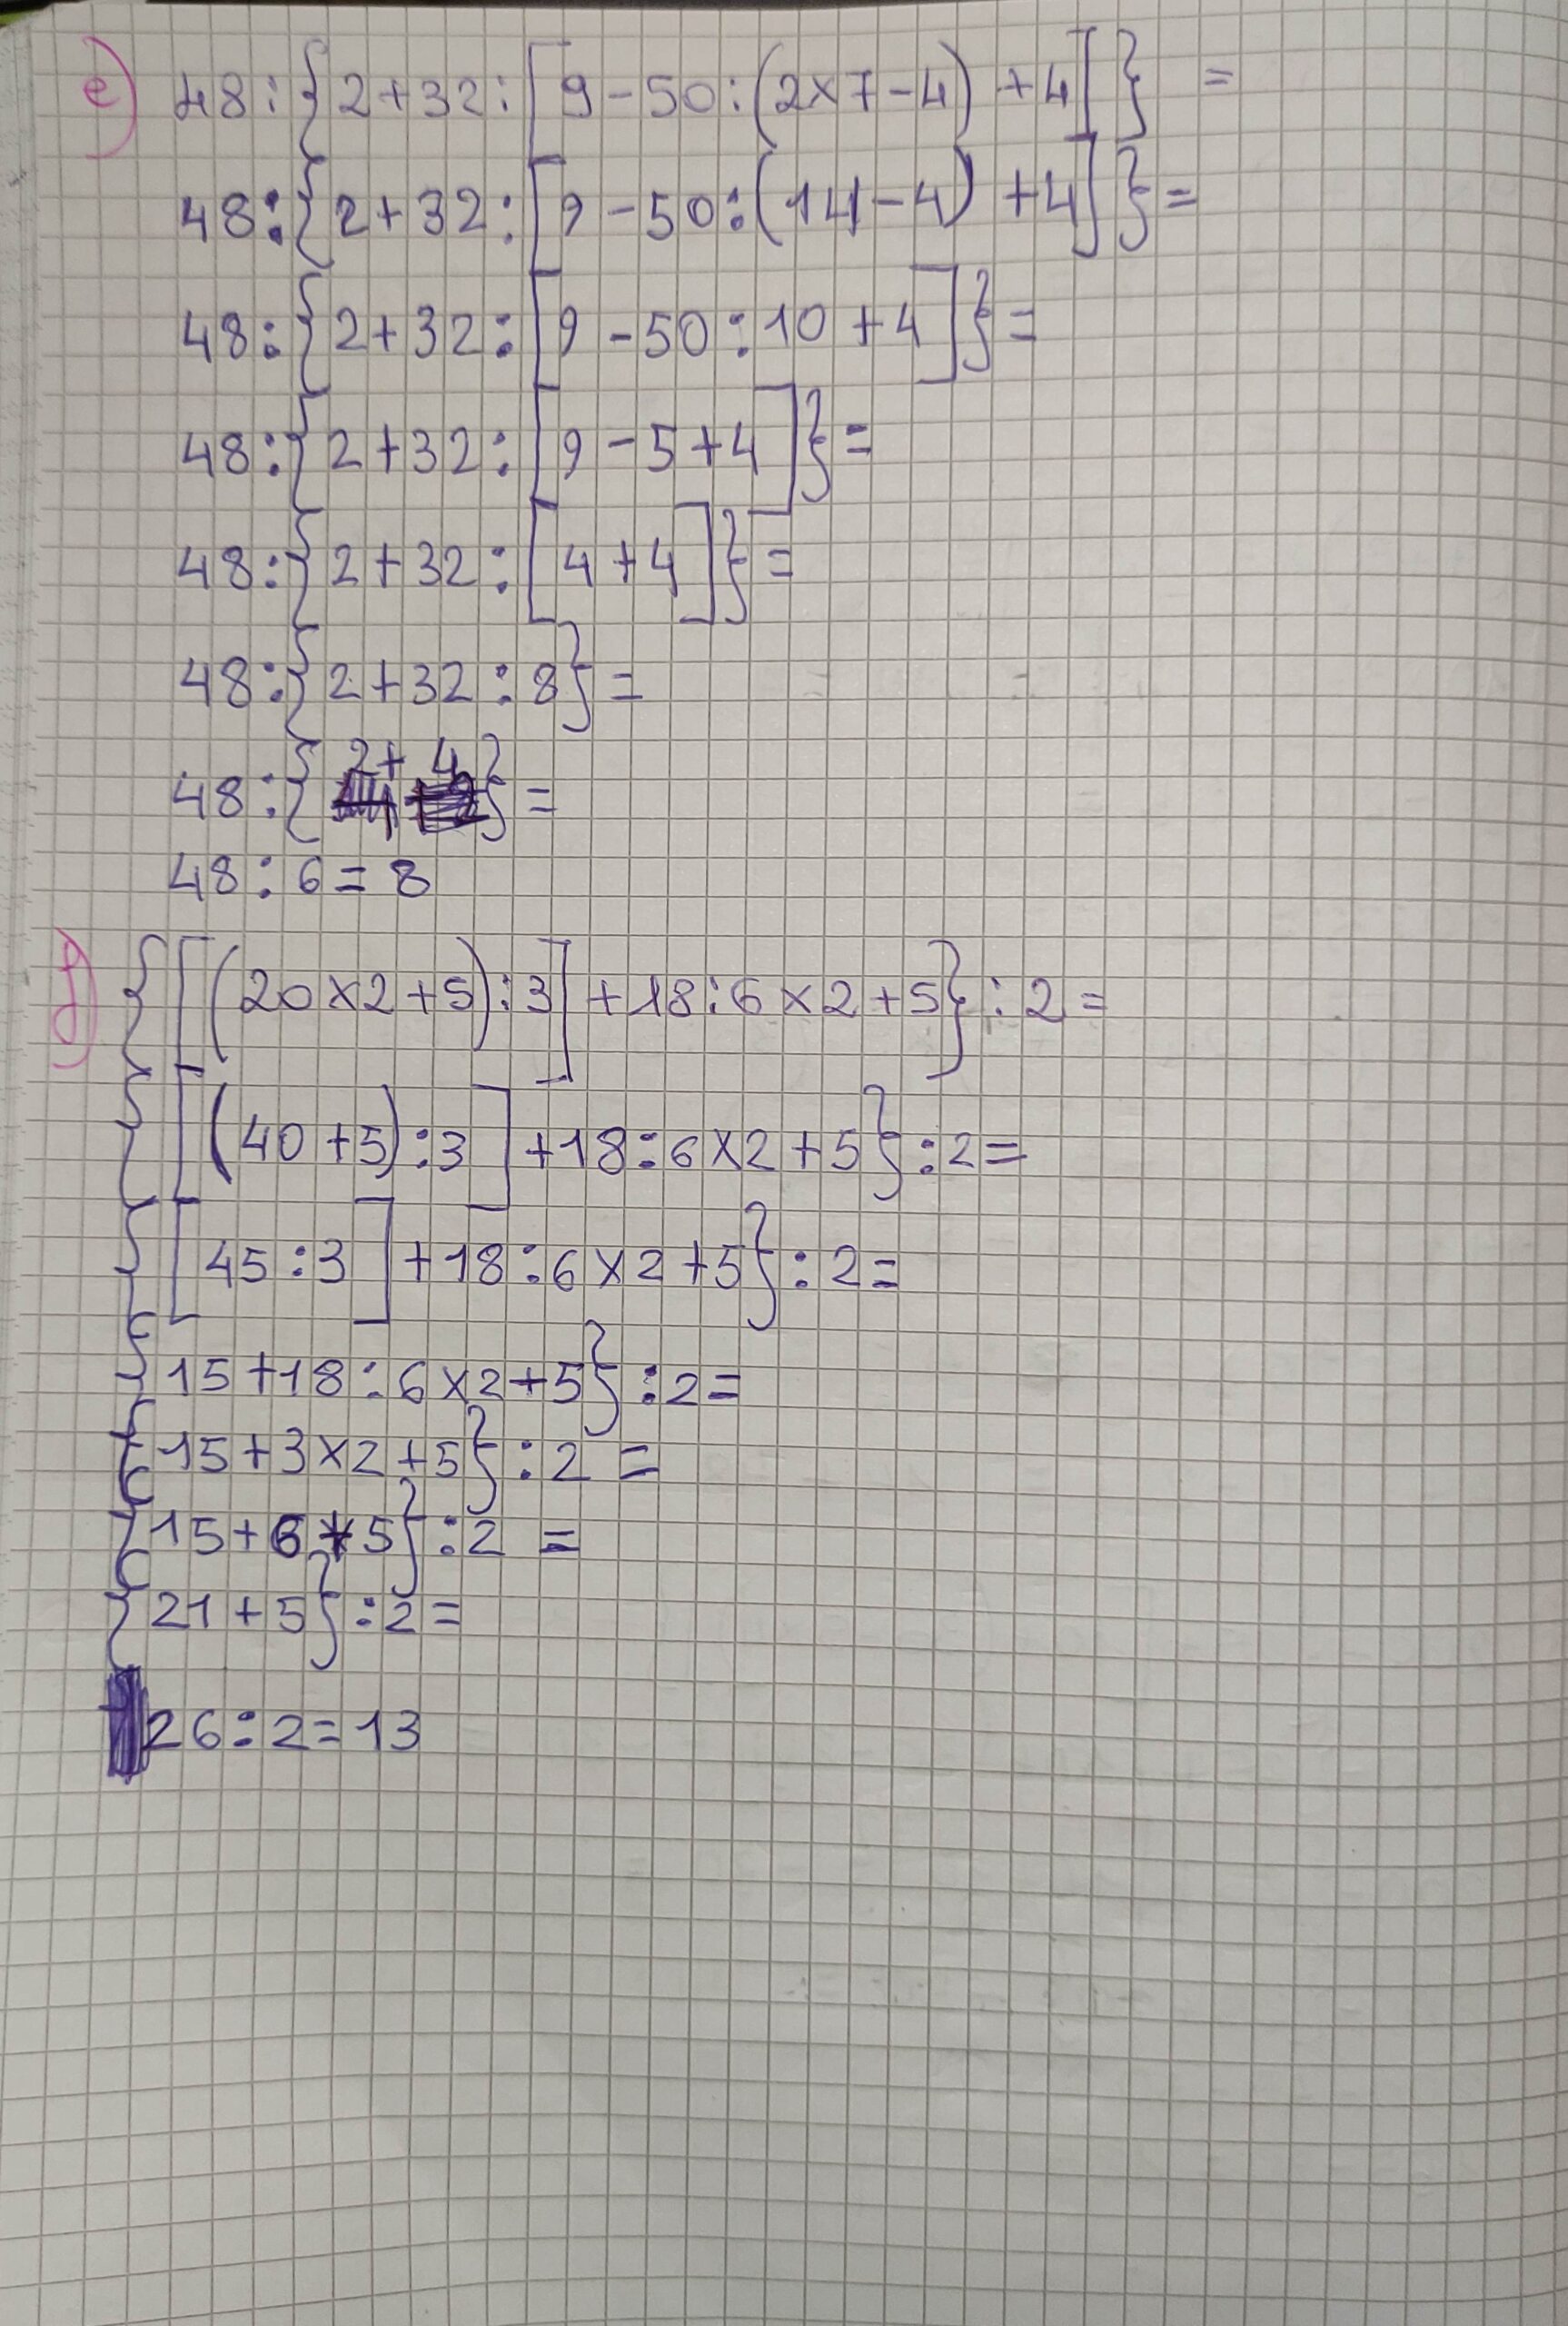 e) 48:{2+32:[9-50:(2x7-4)+4]}=
48:{2+32:[9-50:(14-4)+4]}=
48:{2+32:[9-50:10+4]}=
48:{2+32:[9-5+4]}=
48:{2+32:[4+4]}=
48:{2+32:8}=
48:{2+4}=
48:6=8
f) {[(20x2+5):3]+18:6x2+5}:2=
{[(40+5):3]+18:6x2+5}:2=
{[45:3]+18:6x2+5}:2=
{15+18:6x2+5}:2=
{15+3x2+5}:2=
{15+6+5}:2=
{21+5}:2=
26:2=13